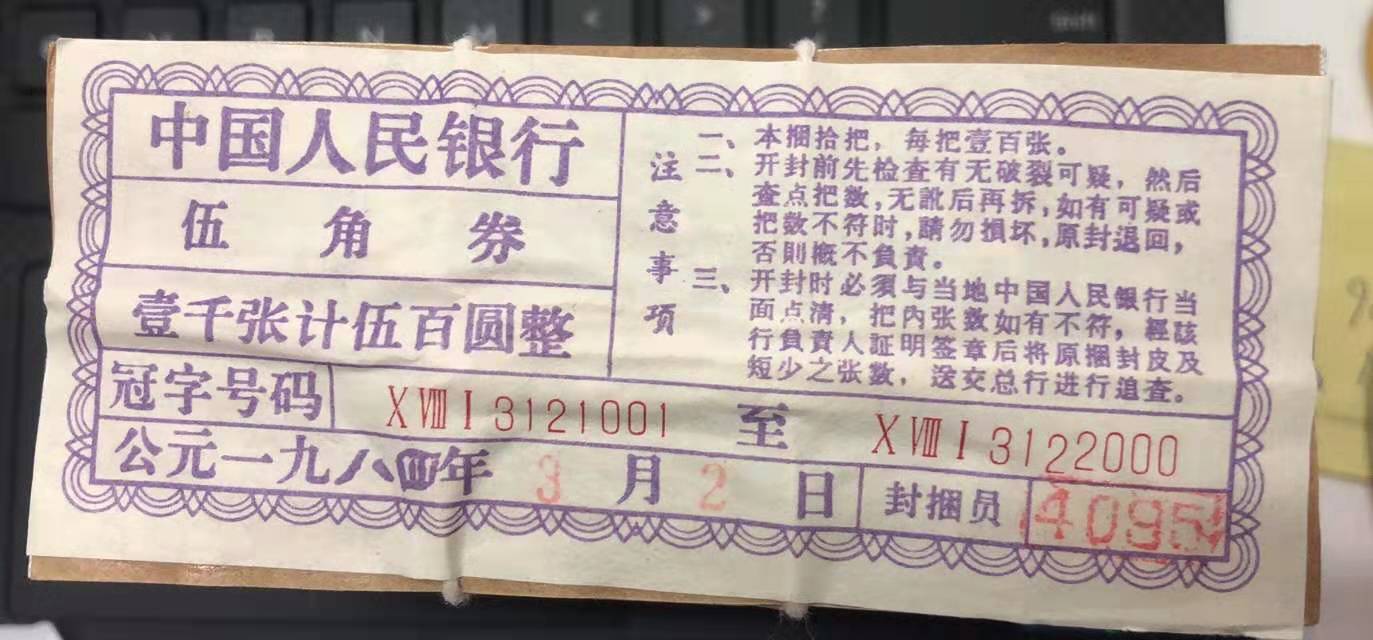 中国人民银行
伍角券
壹千张计伍百圆整
注意事项
一、本捆拾把，每把壹百张。
二、开封前先检查有无破裂可疑，然后
查点把数，无訛后再拆，如有可疑或
把数不符时，請勿損坏，原封退回，
否則概不負責。
三、开封时必須与当地中国人民银行当
面点清，把内张数如有不符，經該
行負責人証明签章后将原捆封皮及
短少之张数，送交总行进行追查。
冠字号码 XⅧI3121001 至 XⅧI3122000
公元一九八四年 3月2日 封捆员 4095